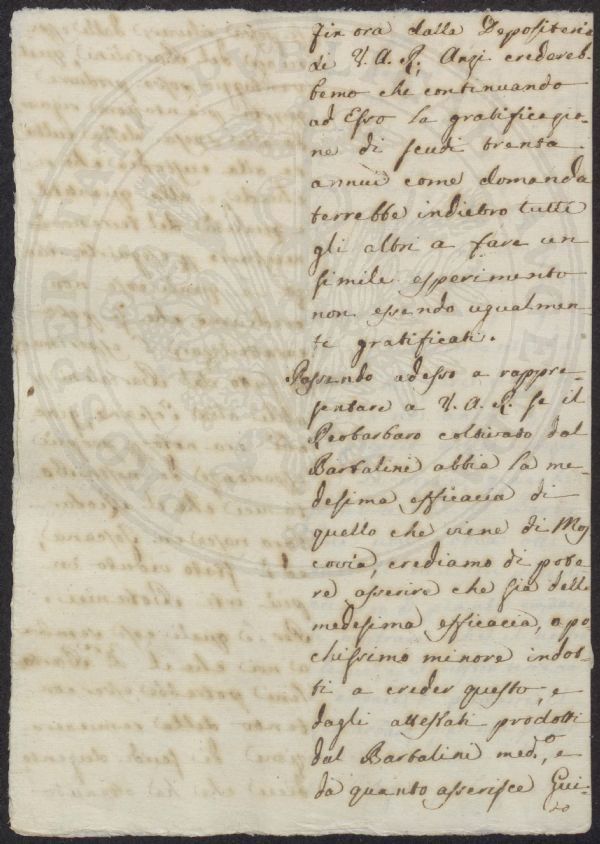 fin ora dalla Depositeria
di V. A. R., Anzi credereb-
bemo che continuando
ad Esso la gratificazio-
ne di scudi trenta
annui come domanda
terrebbe indietro tutti
gli altri a fare un
simile esperimento
non essendo ugualmen-
te gratificati.
Passando adesso a rappre-
sentare a V. A. R. se il
Reobarbaro coltivato dal
Barbalini abbia la me-
desima efficacia di
quello che viene di Mos
covia, crediamo di pote
re asserire che sia della
medesima efficacia, o po
chissimo minore indot-
ti a creder questo, e
dagli attestati prodotti
dal Barbalini med.º, e
da quanto asserisce Gui-
do